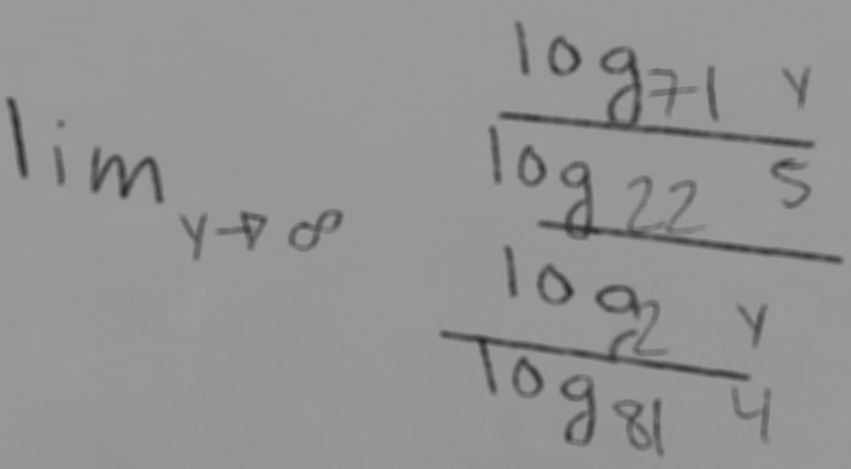 lim y→∞ \frac{\frac{\log_{71} y}{\log_{22} 5}}{\frac{\log_2 y}{\log_{81} 4}}